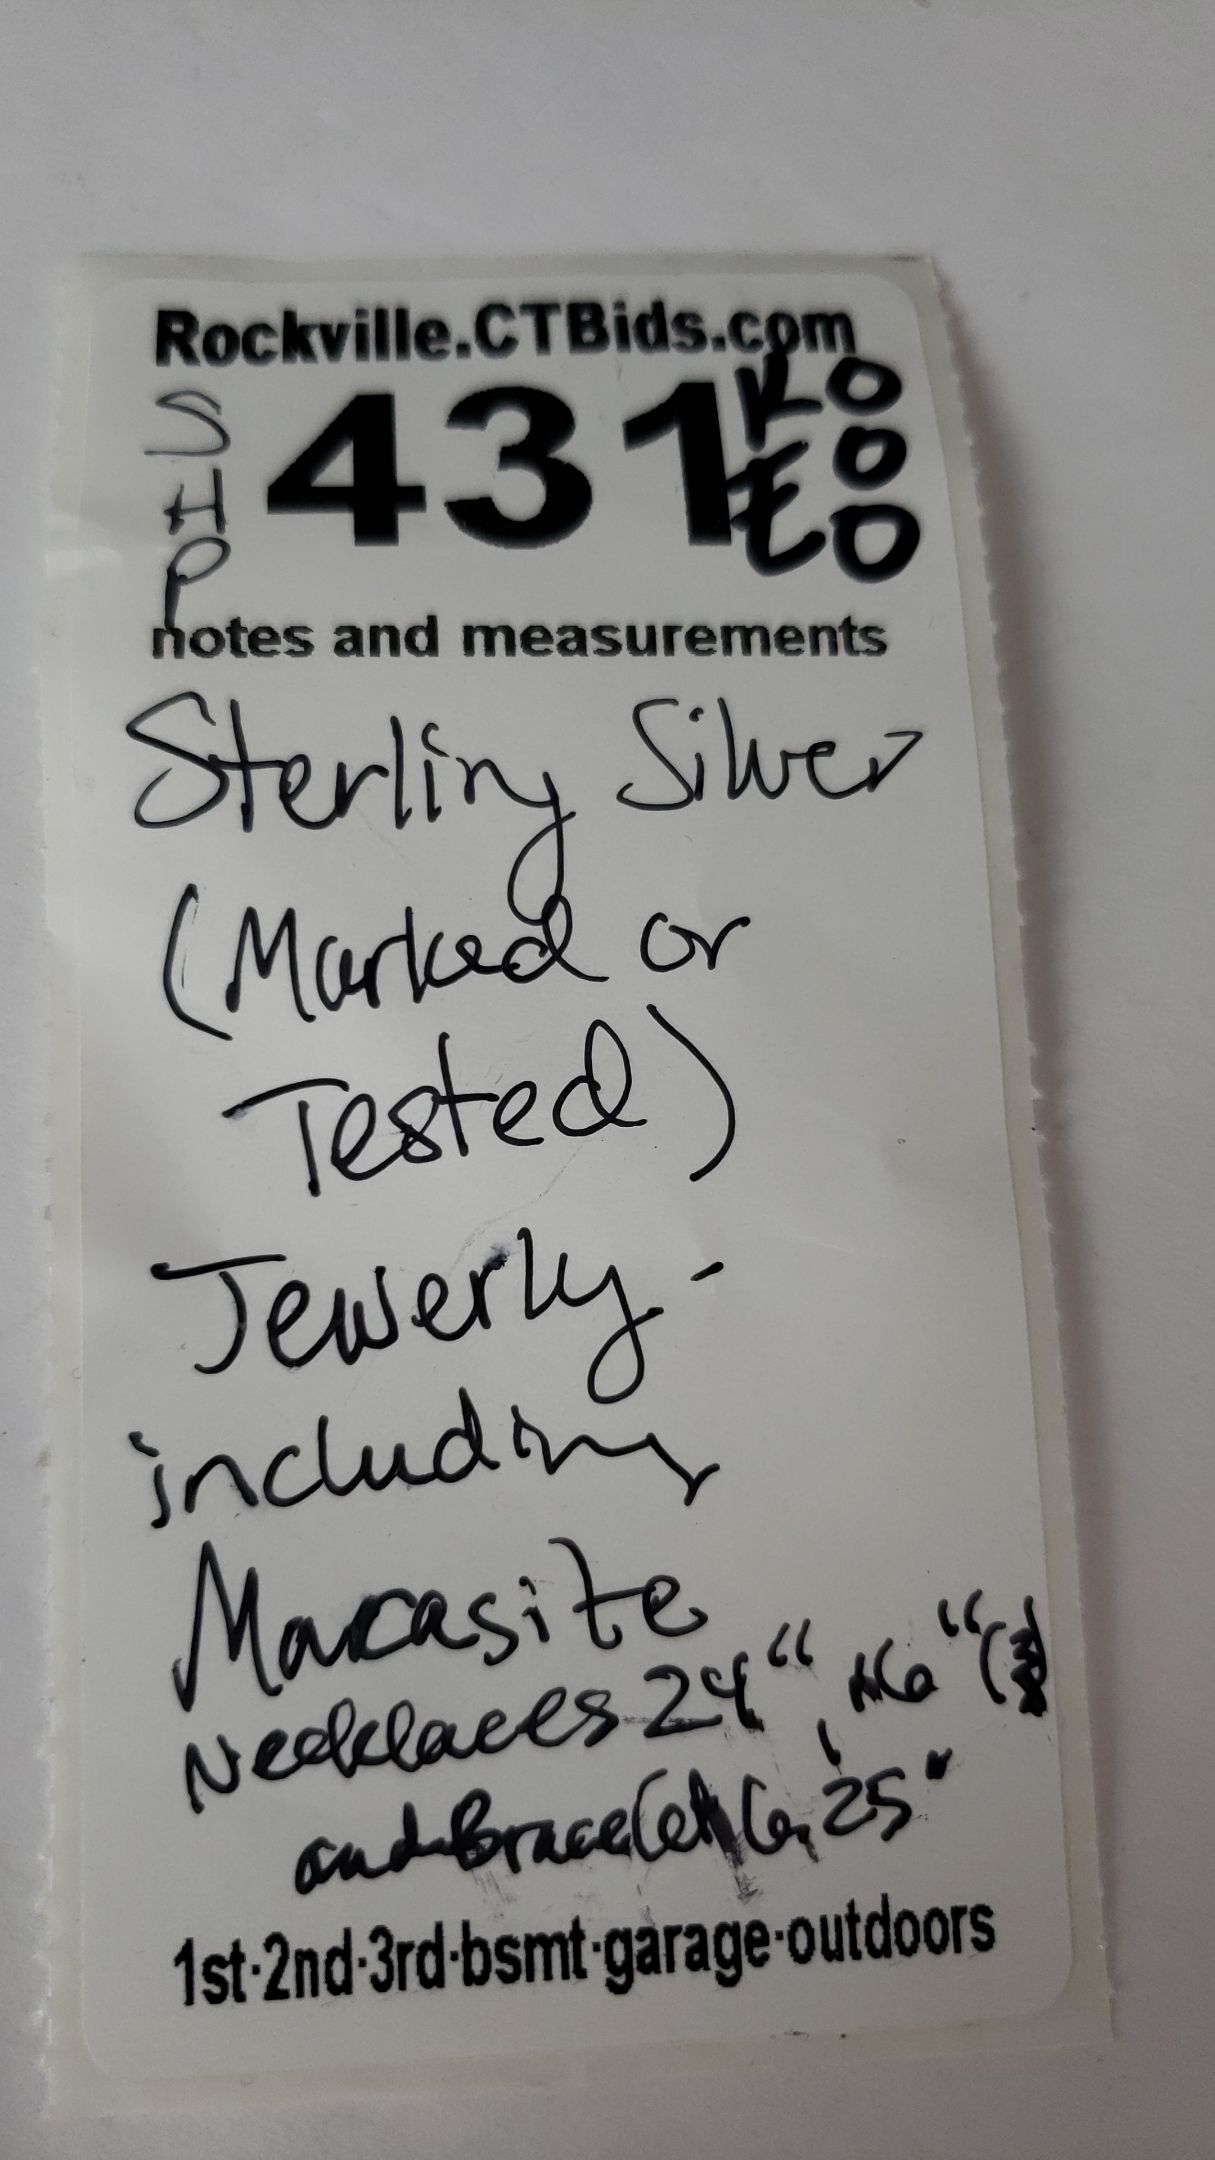 Rockville.CTBids.com
SHP
431
notes and measurements
Sterling Silver
(Marked or
Tested)
Jewerly -
including
Marcasite
Necklaces 24"
and Bracelet 6.25"
1st·2nd·3rd·bsmt·garage·outdoors